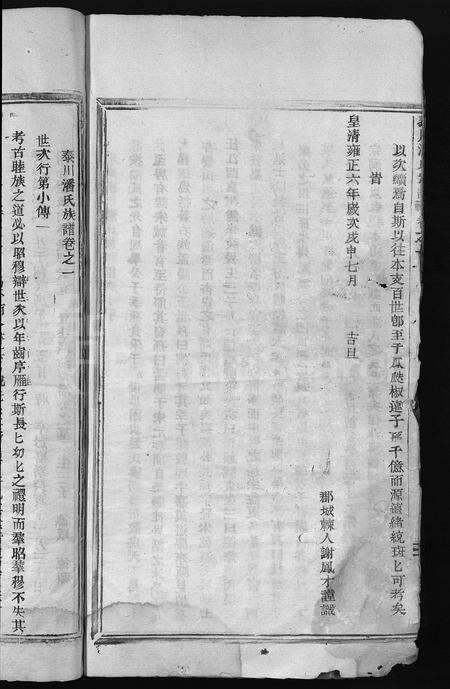 以次續焉自斯以往本支百世卽至于瓜瓞椒遠子孫千億而源遠緒統班匕可考矣
旹
皇清雍正六年歲次戊申七月 吉旦
郡城棘人謝鳳才謹識
泰川潘氏族譜卷之一
世次行第小傳一
考古睦族之道必以昭穆辯世次以年齒序雁行斯長匕幼匕之禮明而羣昭羣穆不失其